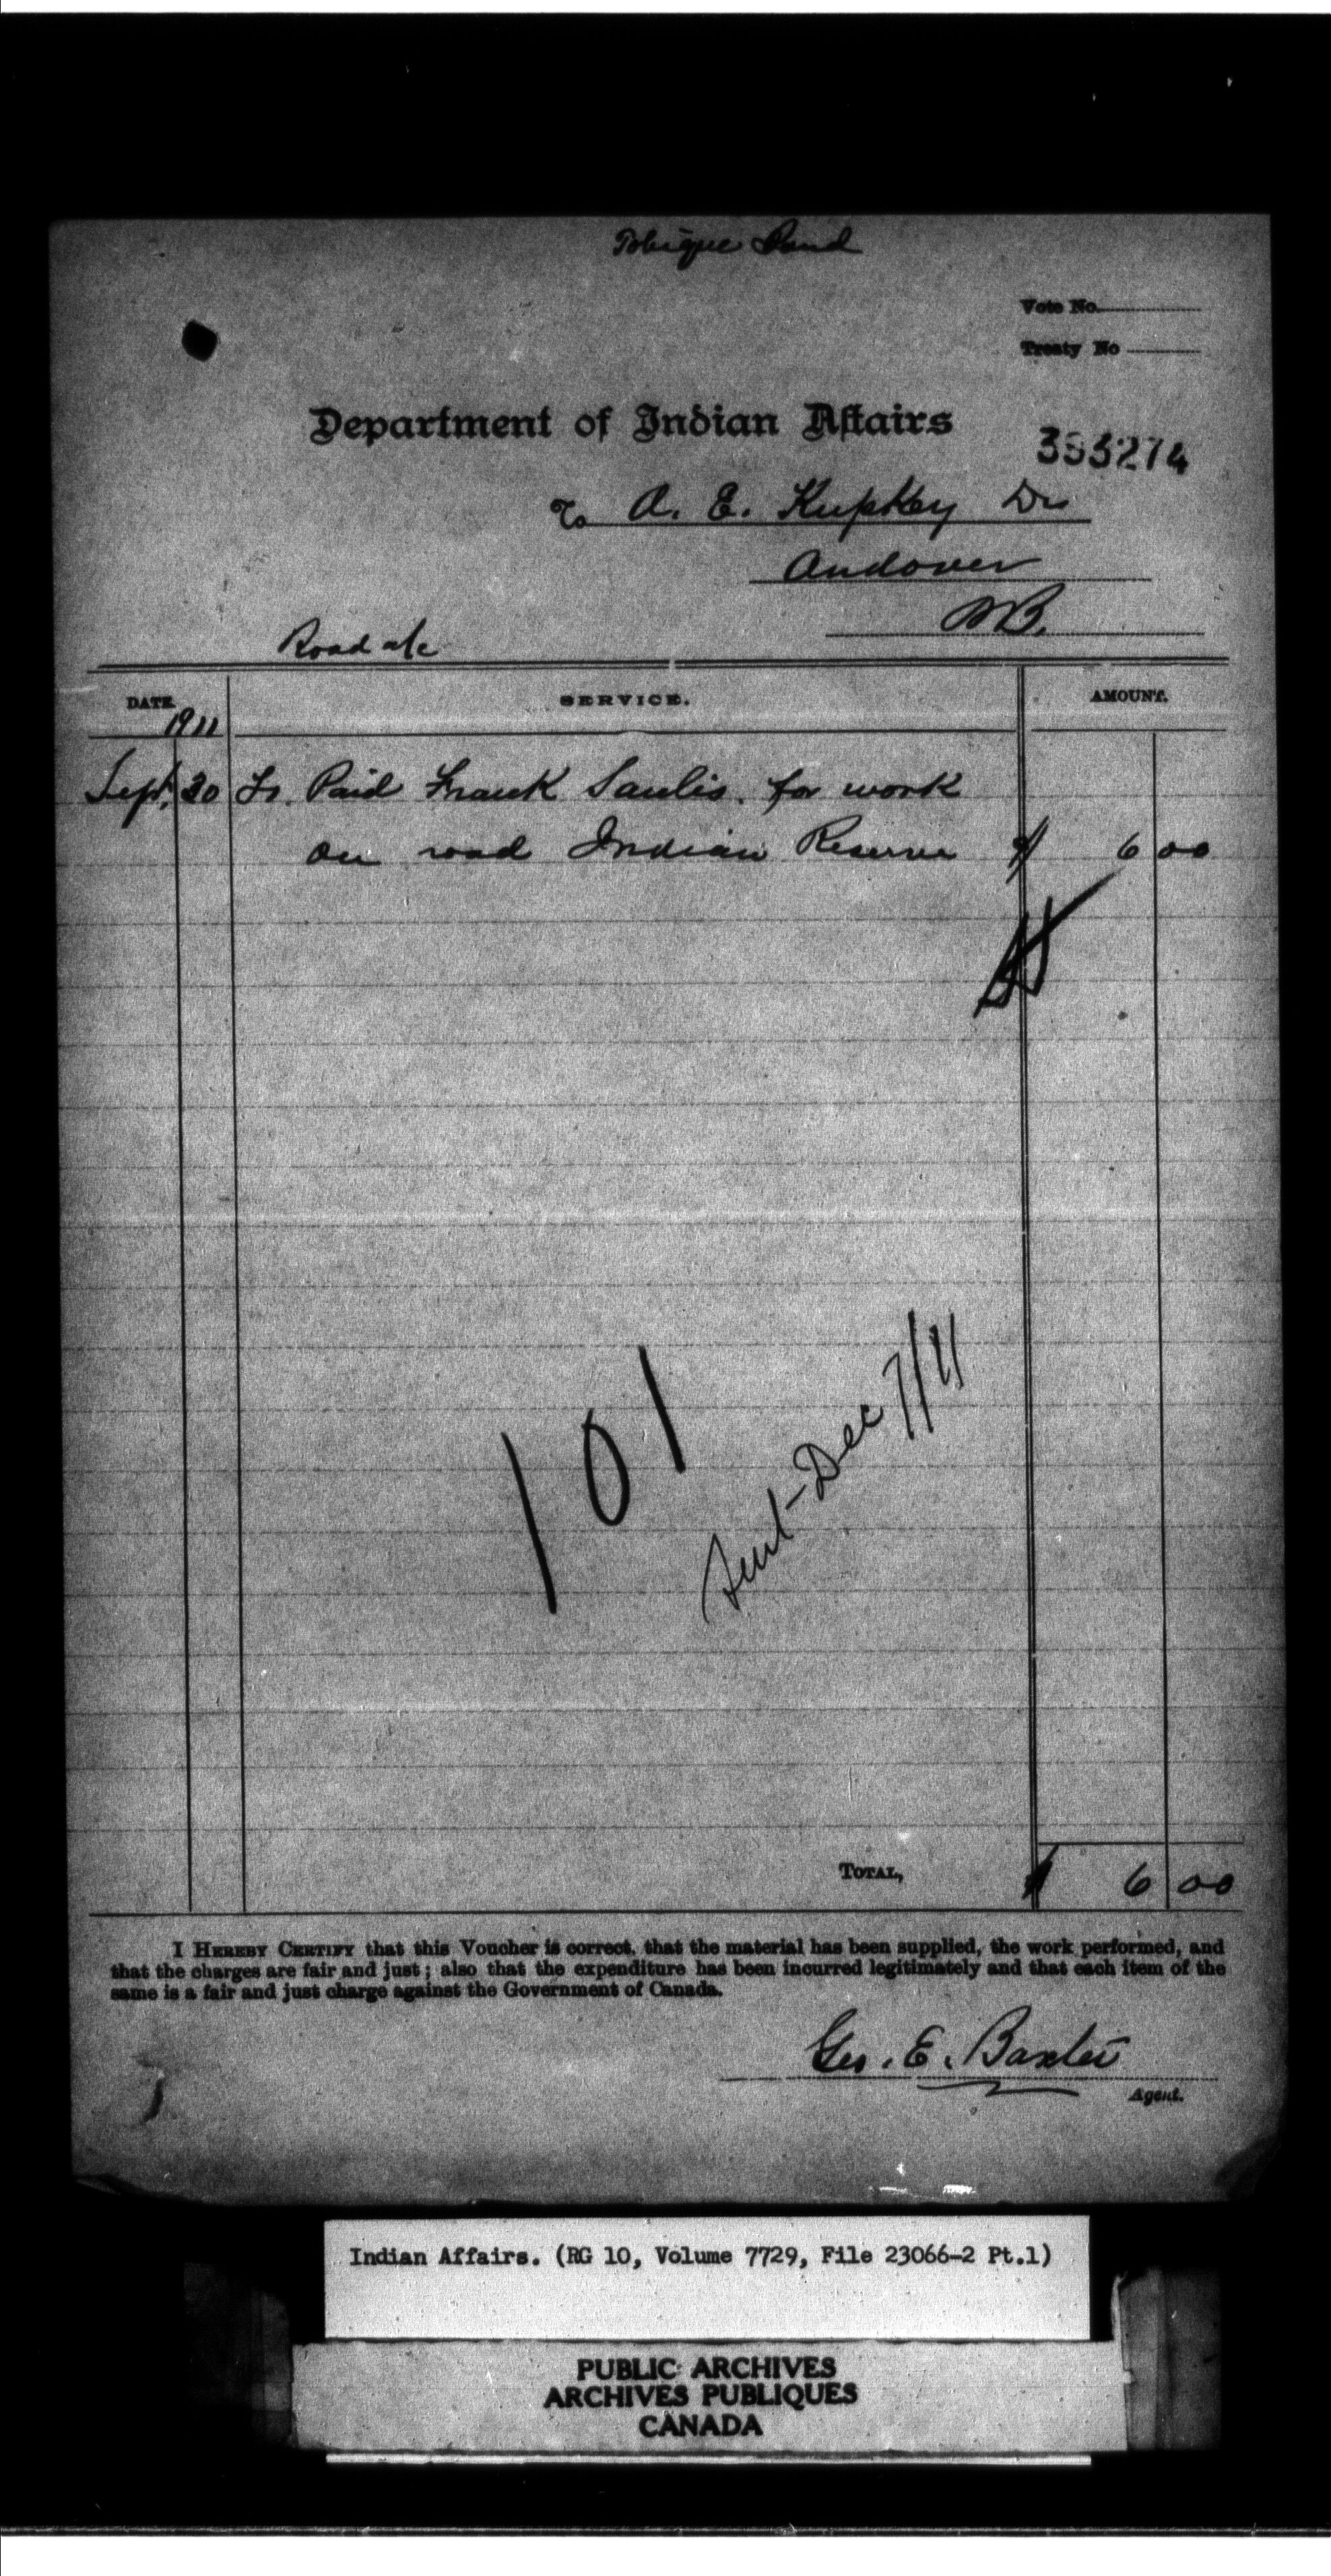 Tobique Band
Vote No.
Treaty No
Department of Indian Affairs
393274
To A. E. Kupkey Dr
Andover
NB.
Road a/c
DATE. SERVICE. AMOUNT.
1911
Sept. 30 To Paid Frank Saulis. for work
on road Indian Reserve $ 6 00
101
Sent - Dec 7/11
TOTAL, $ 6 00
I HEREBY CERTIFY that this Voucher is correct, that the material has been supplied, the work performed, and
that the charges are fair and just; also that the expenditure has been incurred legitimately and that each item of the
same is a fair and just charge against the Government of Canada.
Geo. E. Baxter
Agent.
Indian Affairs. (RG 10, Volume 7729, File 23066-2 Pt.1)
PUBLIC ARCHIVES
ARCHIVES PUBLIQUES
CANADA